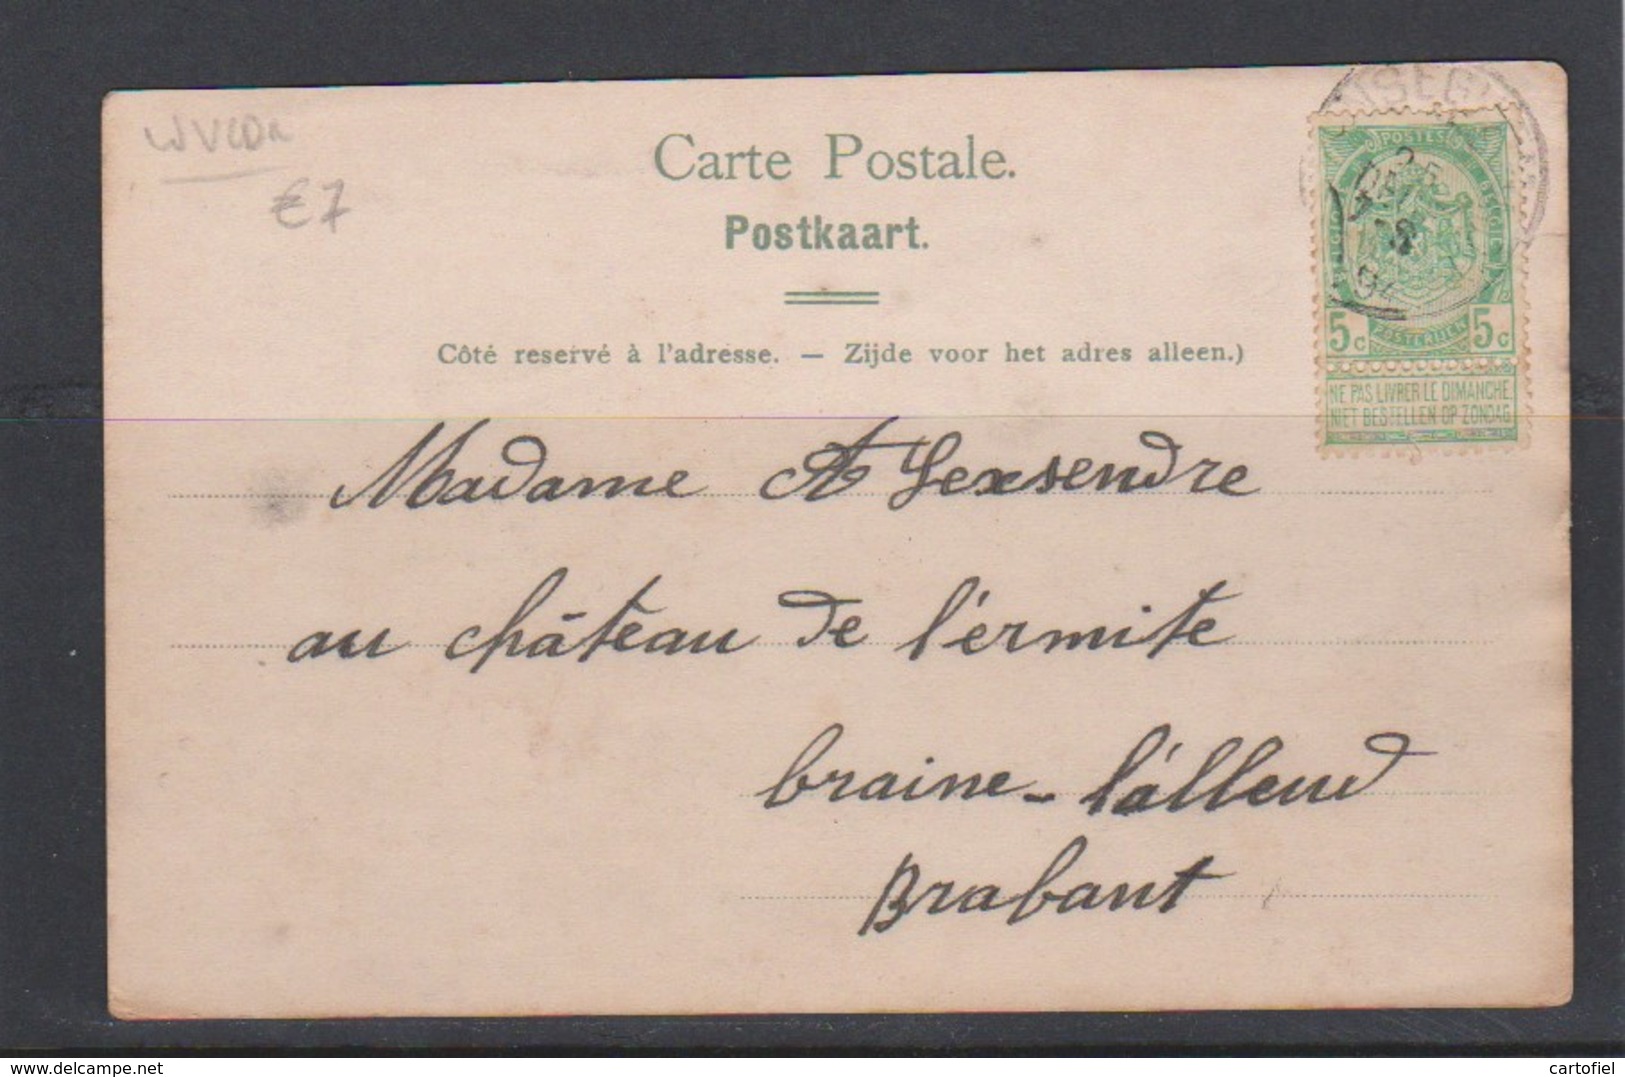 €7
Carte Postale.
Postkaart.
Côté reservé à l'adresse. — Zijde voor het adres alleen.)
POSTES
BELGIQUE
BELGIE
5c POSTERIJEN 5c
NE PAS LIVRER LE DIMANCHE
NIET BESTELLEN OP ZONDAG
25
7-8
04
Madame A
au château de l'ermite
braine-l'alleud
Brabant
www.delcampe.net
cartofiel